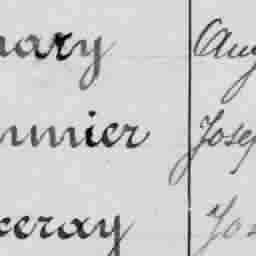 nary Aug
nmier Josep
keray Jos